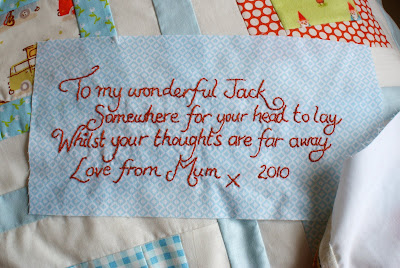 To my wonderful Jack
Somewhere for your head to lay
Whilst your thoughts are far away
Love from Mum x 2010